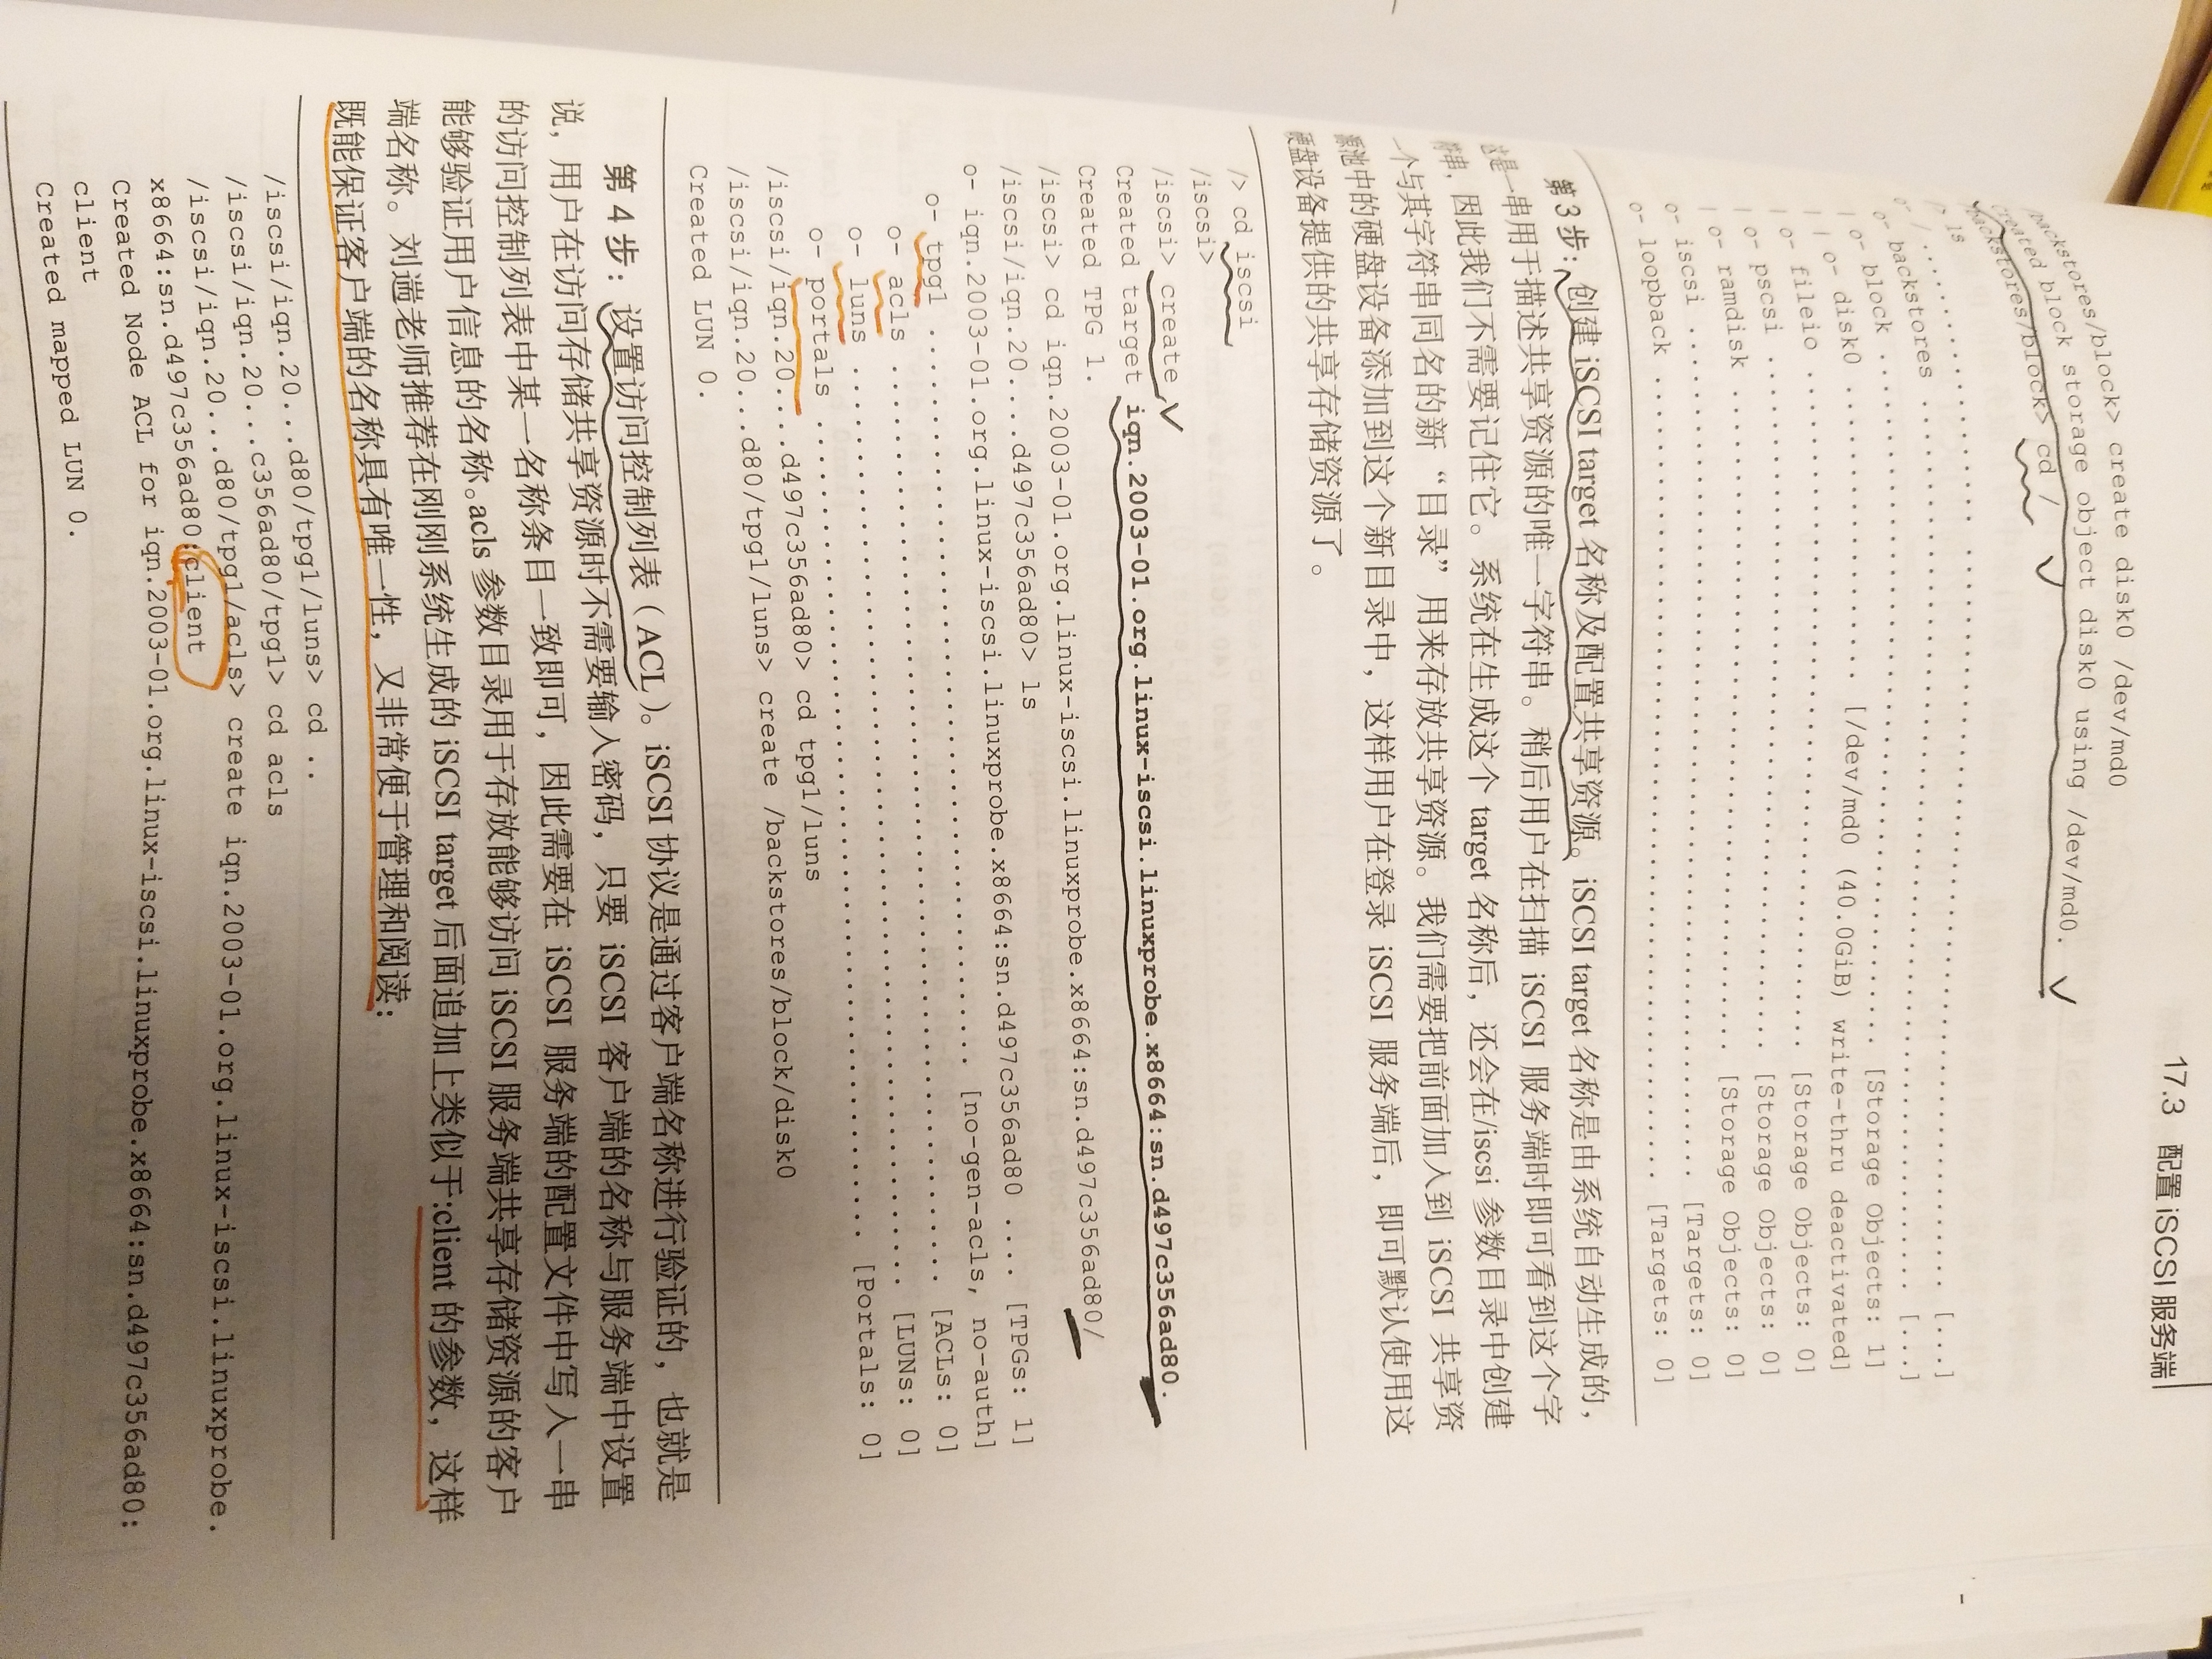 17.3 配置 iSCSI 服务端
/backstores/block> create disk0 /dev/md0
Created block storage object disk0 using /dev/md0.
/backstores/block> cd /
/> ls
o- / ..................................................... [...]
o- backstores ............................................ [...]
| o- block .............................. [Storage Objects: 1]
| | o- disk0 ........... [/dev/md0 (40.0GiB) write-thru deactivated]
| o- fileio ............................. [Storage Objects: 0]
| o- pscsi .............................. [Storage Objects: 0]
| o- ramdisk ............................ [Storage Objects: 0]
o- iscsi ........................................ [Targets: 0]
o- loopback ..................................... [Targets: 0]
第 3 步：创建 iSCSI target 名称及配置共享资源。iSCSI target 名称是由系统自动生成的，
这是一串用于描述共享资源的唯一字符串。稍后用户在扫描 iSCSI 服务端时即可看到这个字
符串，因此我们不需要记住它。系统在生成这个 target 名称后，还会在/iscsi 参数目录中创建
一个与其字符串同名的新“目录”用来存放共享资源。我们需要把前面加入到 iSCSI 共享资
源池中的硬盘设备添加到这个新目录中，这样用户在登录 iSCSI 服务端后，即可默认使用这
硬盘设备提供的共享存储资源了。
/> cd iscsi
/iscsi>
/iscsi> create
Created target iqn.2003-01.org.linux-iscsi.linuxprobe.x8664:sn.d497c356ad80.
Created TPG 1.
/iscsi> cd iqn.2003-01.org.linux-iscsi.linuxprobe.x8664:sn.d497c356ad80/
/iscsi/iqn.20....d497c356ad80> ls
o- iqn.2003-01.org.linux-iscsi.linuxprobe.x8664:sn.d497c356ad80 .... [TPGs: 1]
o- tpg1 ........................... [no-gen-acls, no-auth]
o- acls ........................................ [ACLs: 0]
o- luns ........................................ [LUNs: 0]
o- portals .................................. [Portals: 0]
/iscsi/iqn.20....d497c356ad80> cd tpg1/luns
/iscsi/iqn.20...d80/tpg1/luns> create /backstores/block/disk0
Created LUN 0.
第 4 步：设置访问控制列表（ACL）。iSCSI 协议是通过客户端名称进行验证的，也就是
说，用户在访问存储共享资源时不需要输入密码，只要 iSCSI 客户端的名称与服务端中设置
的访问控制列表中某一名称条目一致即可，因此需要在 iSCSI 服务端的配置文件中写入一串
能够验证用户信息的名称。acls 参数目录用于存放能够访问 iSCSI 服务端共享存储资源的客户
端名称。刘遄老师推荐在刚刚系统生成的 iSCSI target 后面追加上类似于:client 的参数，这样
既能保证客户端的名称具有唯一性，又非常便于管理和阅读：
/iscsi/iqn.20...d80/tpg1/luns> cd ..
/iscsi/iqn.20...c356ad80/tpg1> cd acls
/iscsi/iqn.20...d80/tpg1/acls> create iqn.2003-01.org.linux-iscsi.linuxprobe.
x8664:sn.d497c356ad80:client
Created Node ACL for iqn.2003-01.org.linux-iscsi.linuxprobe.x8664:sn.d497c356ad80:
client
Created mapped LUN 0.